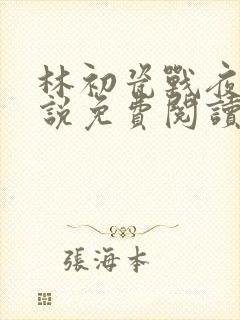 林初瓷戰夜
說免費閱讀
張海本